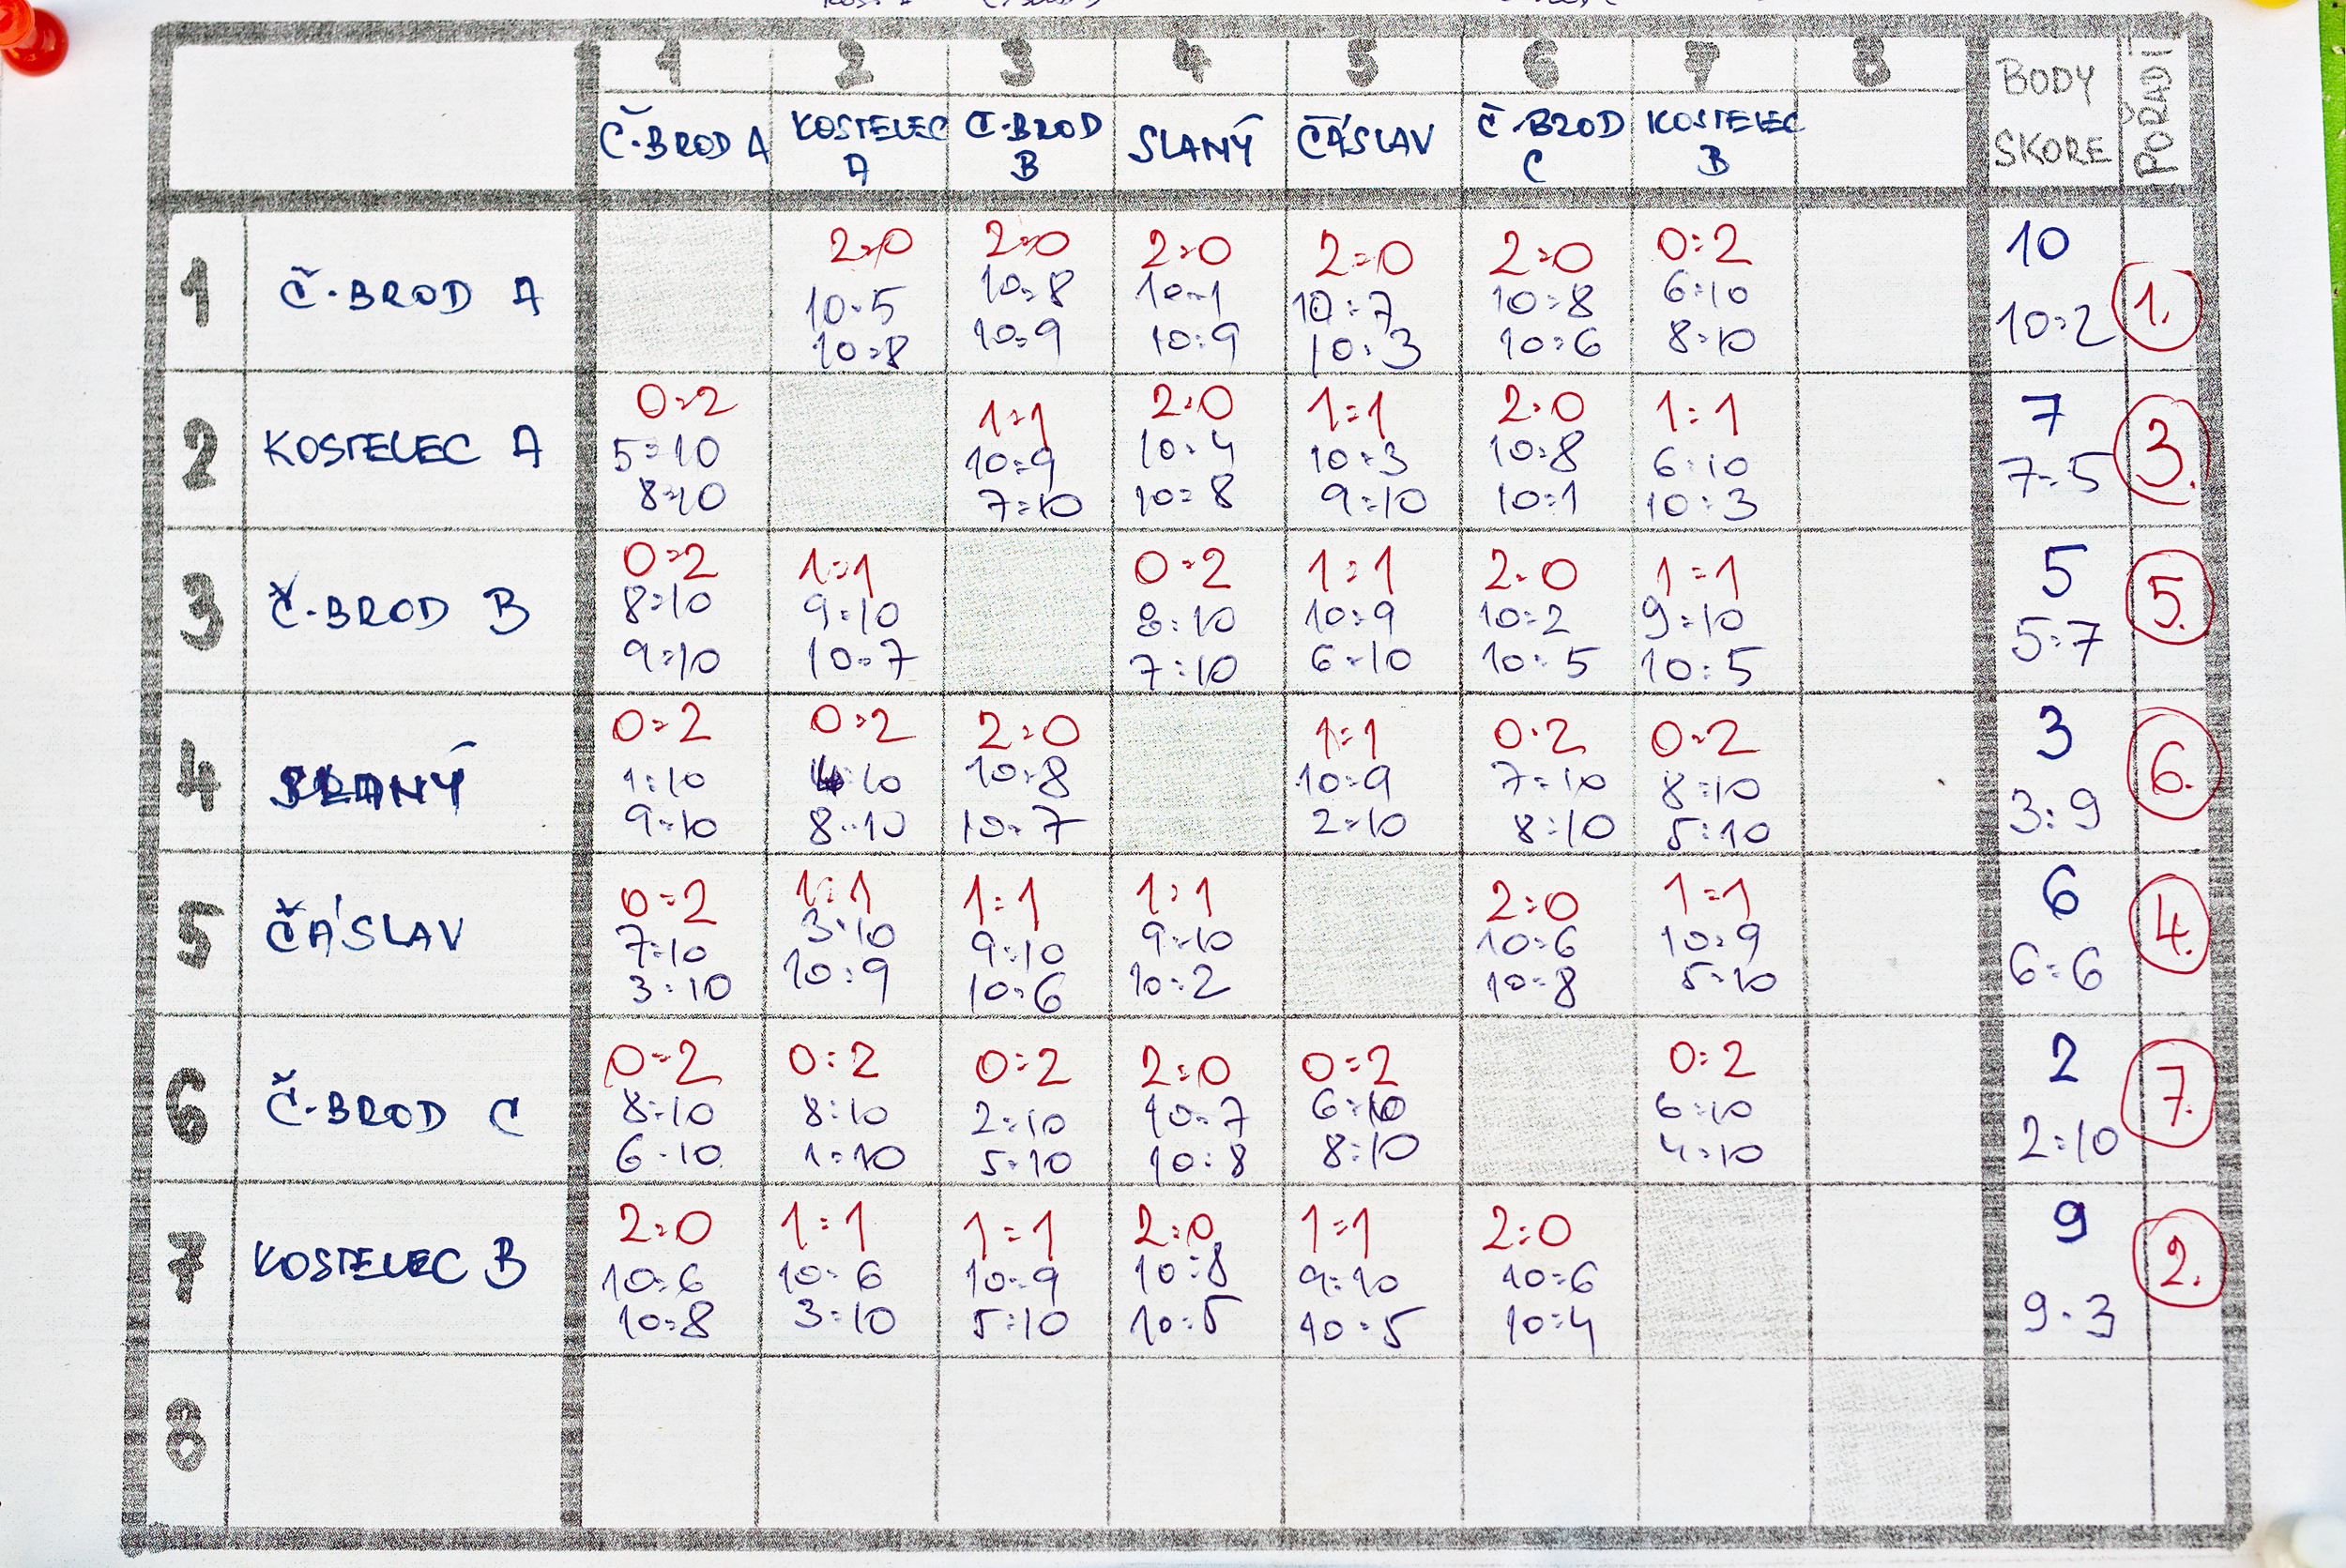 1 2 3 4 5 6 7 8 BODY SKORE POŘADÍ
Č.BROD A KOSTELEC A Č.BROD B SLANÝ ČÁSLAV Č.BROD C KOSTELEC B
1 Č.BROD A 2:0 2:0 2:0 2:0 2:0 0:2 10 1.
10:5 10:8 10:1 10:7 10:8 6:10
10:8 10:9 10:9 10:3 10:6 8:10 10:2
2 KOSTELEC A 0:2 1:1 2:0 1:1 2:0 1:1 7 3.
5:10 10:9 10:4 10:3 10:8 6:10
8:10 7:10 10:8 9:10 10:1 10:3 7:5
3 Č.BROD B 0:2 1:1 0:2 1:1 2:0 1:1 5 5.
8:10 9:10 8:10 10:9 10:2 9:10
9:10 10:7 7:10 6:10 10:5 10:5 5:7
4 SLANÝ 0:2 0:2 2:0 1:1 0:2 0:2 3 6.
1:10 4:10 10:8 10:9 7:10 8:10
9:10 8:10 10:7 2:10 8:10 5:10 3:9
5 ČÁSLAV 0:2 1:1 1:1 1:1 2:0 1:1 6 4.
7:10 3:10 9:10 9:10 10:6 10:9
3:10 10:9 10:6 10:2 10:8 5:10 6:6
6 Č.BROD C 0:2 0:2 0:2 2:0 0:2 0:2 2 7.
8:10 8:10 2:10 10:7 6:10 6:10
6:10 1:10 5:10 10:8 8:10 4:10 2:10
7 KOSTELEC B 2:0 1:1 1:1 2:0 1:1 2:0 9 2.
10:6 10:6 10:9 10:8 9:10 10:6
10:8 3:10 5:10 10:5 10:5 10:4 9:3
8